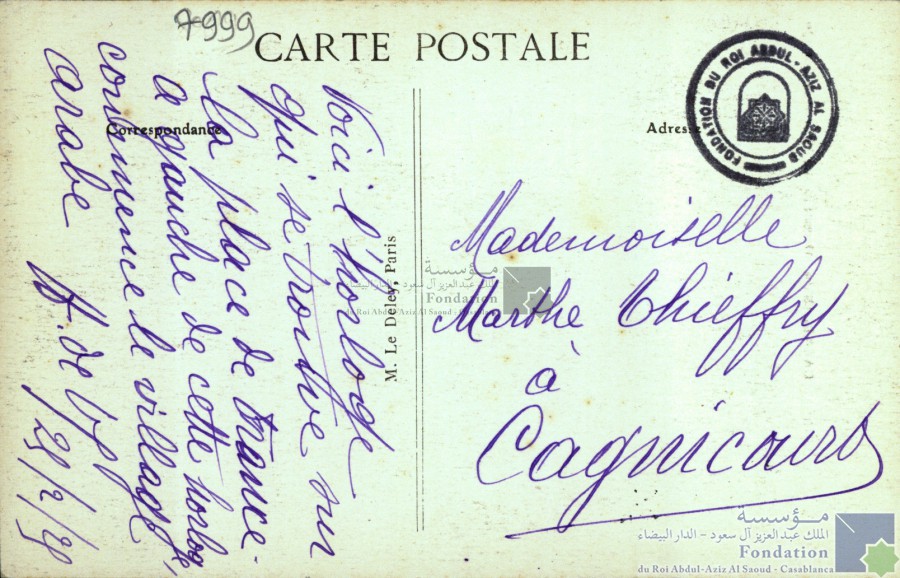 7999
CARTE POSTALE
Correspondance
Adresse
FONDATION DU ROI ABDUL-AZIZ AL SAOUD
Voici l'horloge
qui se trouve sur
la place de France.
a gauche de cette horloge,
commence le village
arabe
Mademoiselle
Marthe Thieffry
à
Cagnicourt
M. Le Deley, Paris
مؤسسة
الملك عبد العزيز آل سعود - الدار البيضاء
Fondation
du Roi Abdul-Aziz Al Saoud - Casablanca
مؤسسة
الملك عبد العزيز آل سعود - الدار البيضاء
Fondation
du Roi Abdul-Aziz Al Saoud - Casablanca